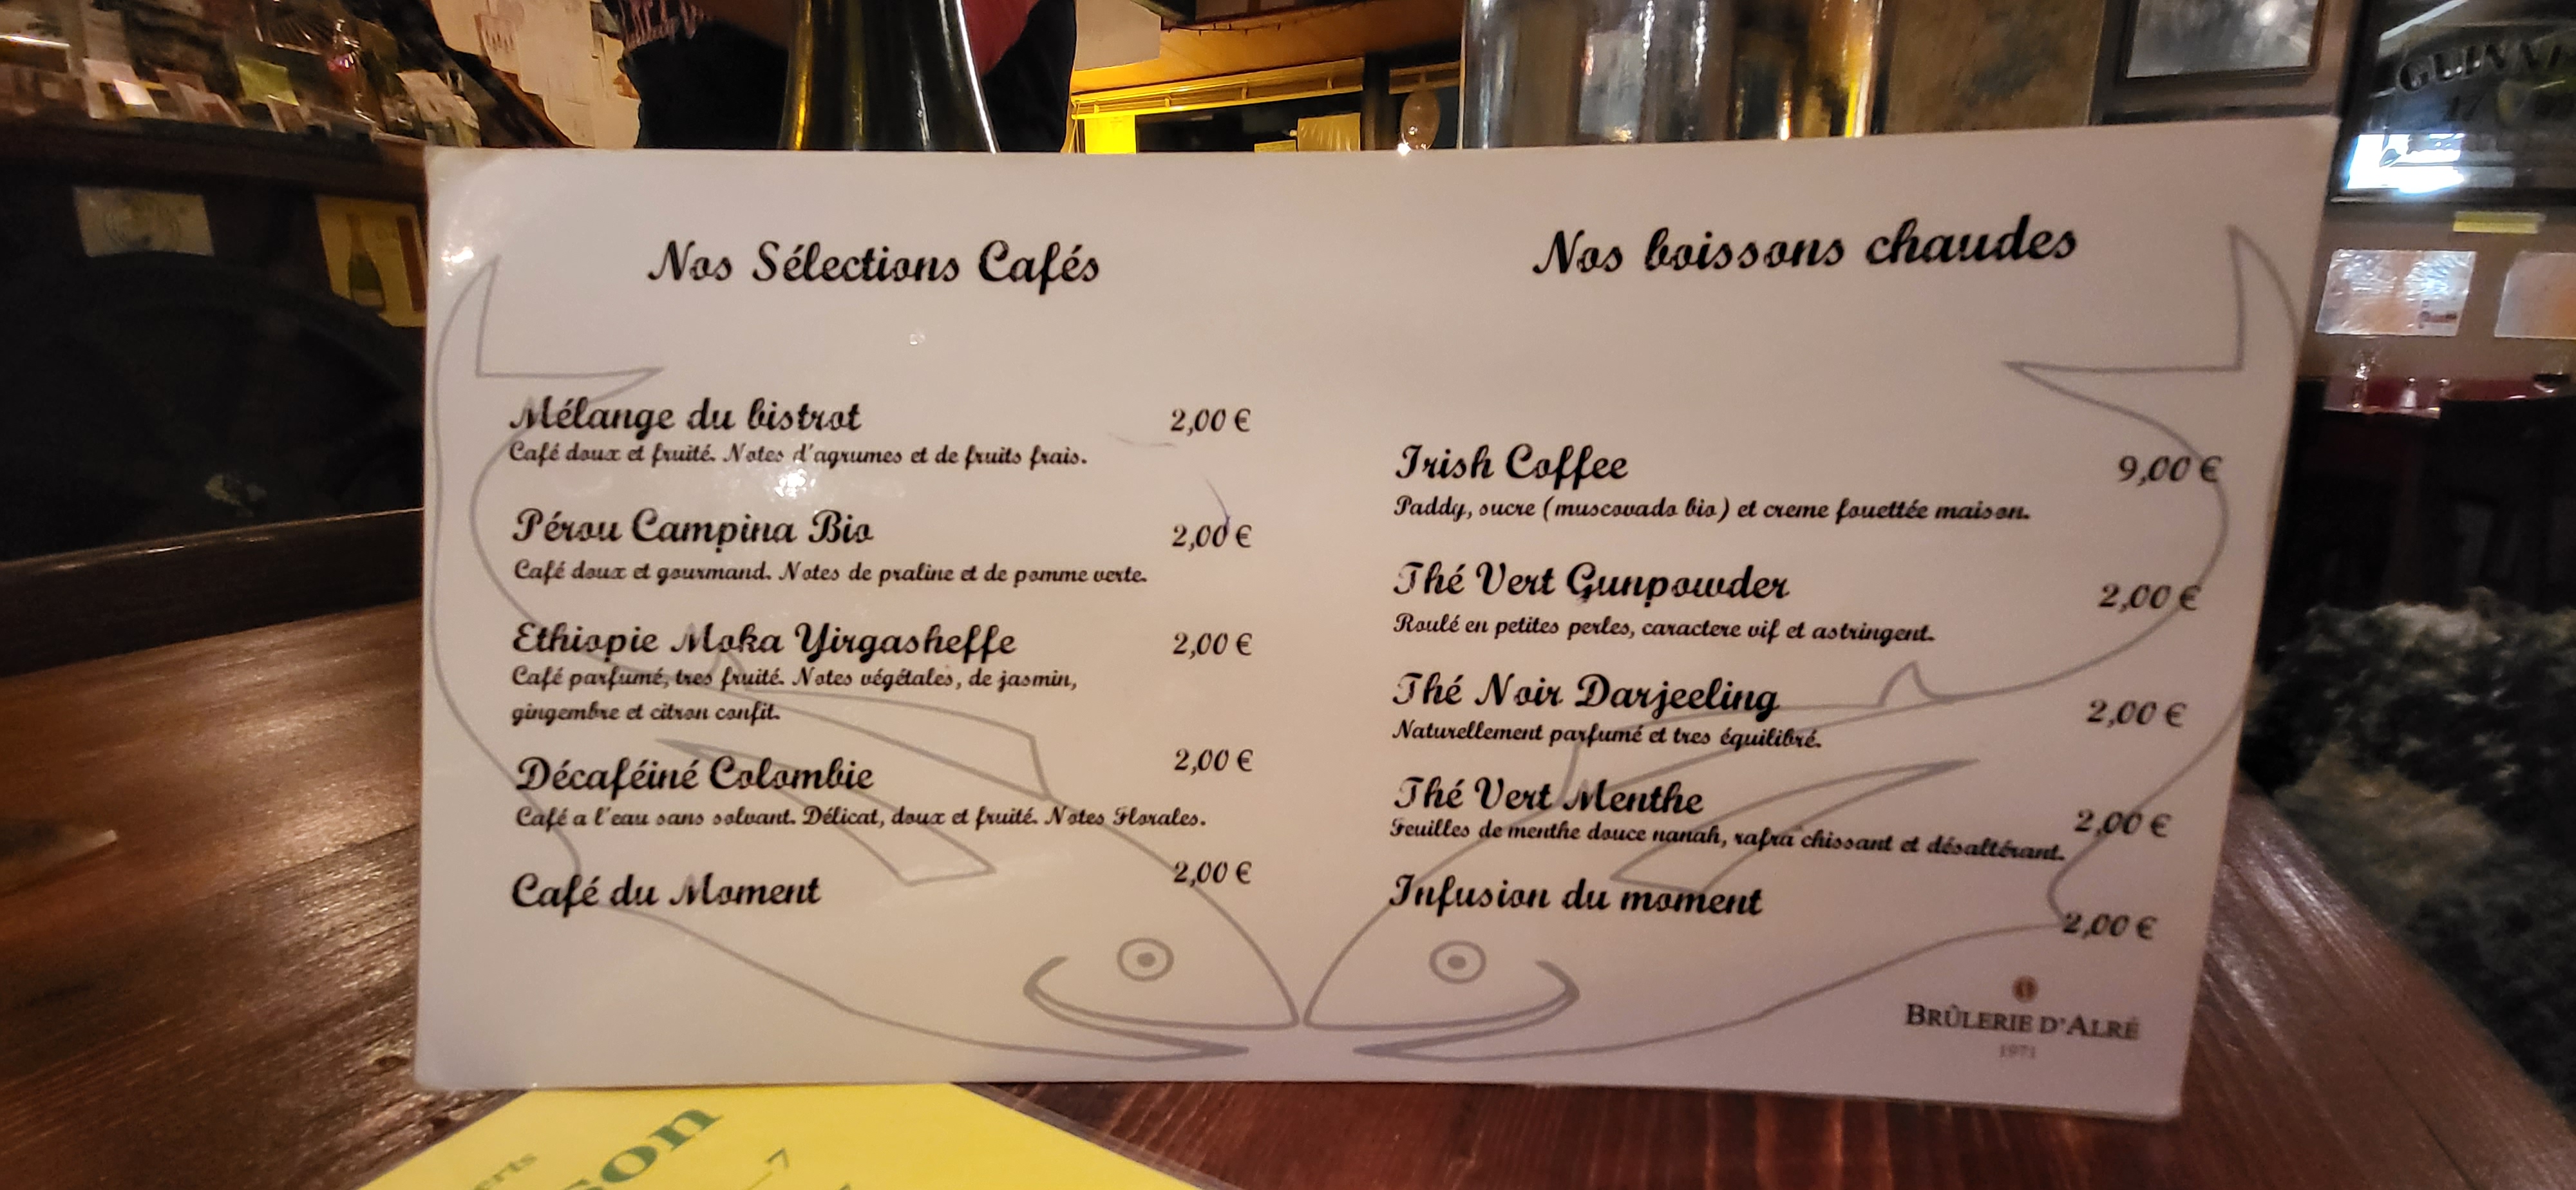 Nos Sélections Cafés
Mélange du bistrot 2,00 €
Café doux et fruité. Notes d'agrumes et de fruits frais.
Pérou Campina Bio 2,00 €
Café doux et gourmand. Notes de praline et de pomme verte.
Ethiopie Moka Yirgasheffe 2,00 €
Café parfumé, tres fruité. Notes végétales, de jasmin,
gingembre et citron confit.
Décaféiné Colombie 2,00 €
Café a l'eau sans solvant. Délicat, doux et fruité. Notes Florales.
Café du Moment 2,00 €
Nos boissons chaudes
Irish Coffee 9,00 €
Paddy, sucre (muscovado bio) et creme fouettée maison.
Thé Vert Gunpowder 2,00 €
Roulé en petites perles, caractere vif et astringent.
Thé Noir Darjeeling 2,00 €
Naturellement parfumé et tres équilibré.
Thé Vert Menthe 2,00 €
Feuilles de menthe douce nanah, rafra chissant et désaltérant.
Infusion du moment 2,00 €
BRÛLERIE D'ALRÉ
1971